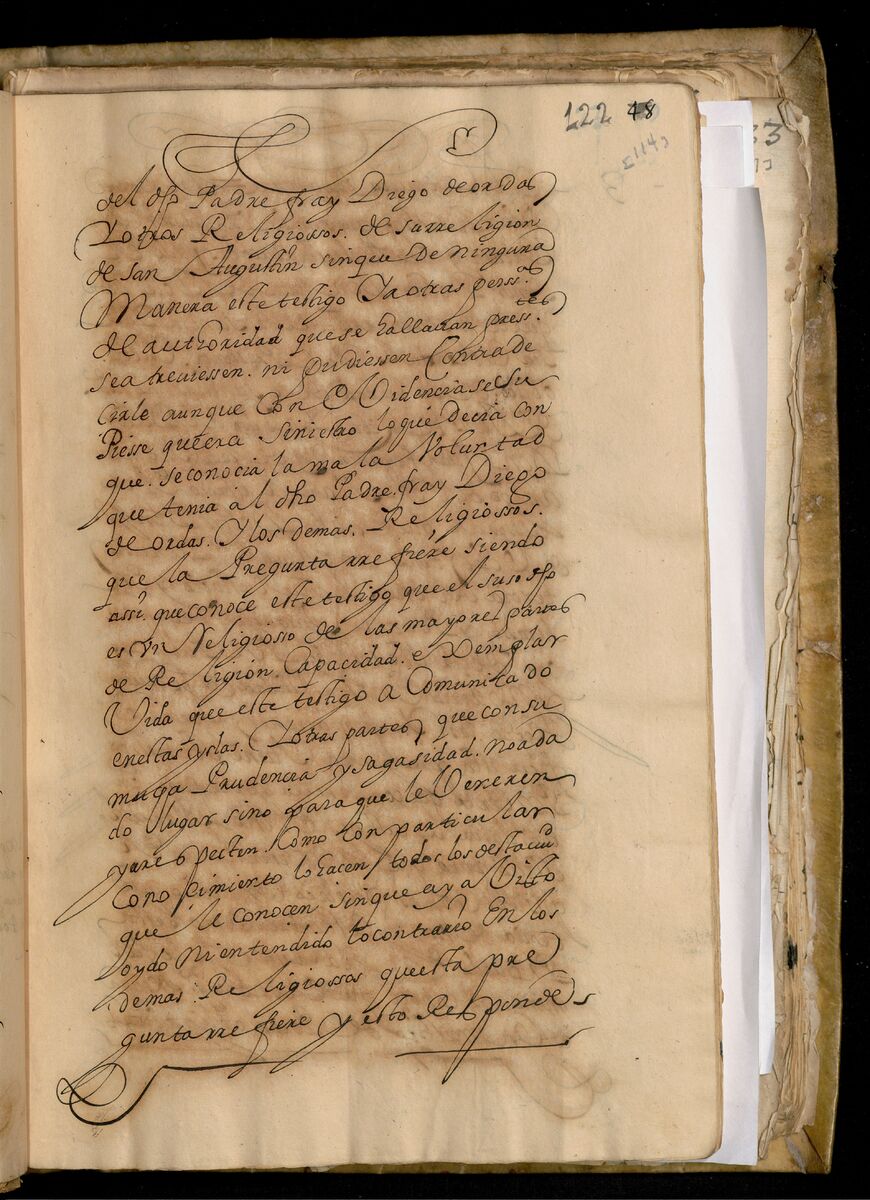 122 48
[114]
del dho Padre fray Diego de ordas
Y otros Religiossos. de su rreligion
de san Augustin sin que de ninguna
Manera este testigo Ya otras perss.as
de authoridad que se hallauan press.tes
se atreuiessen. ni pudiessen Contrade
cirle aunque Con Evidencia se su
Piesse que era siniestro lo que decia con
que. se conocia la mala Voluntad
que tenia al dho Padre. fray Diego
de ordas. Y los demas. Religiossos.
que la Pregunta rrefiere siendo
assi. que conoce este testigo que el suso dho
es Vn Religiosso de las mayores partes
de Religion. Capacidad. e Exemplar
Vida que este testigo a Comunicado
en estas yslas. Y otras partes que con su
mucha Prudencia y sagasidad. no a da
do lugar sino para que le Veneren
y arespecten. Como con particular
Conocimiento lo hacen todos los desta ciud
que le conocen sin que aya Visto
oydo Ni entendido lo contrario En los
demas Religiossos que esta pre
gunta rrefiere y esto Responde